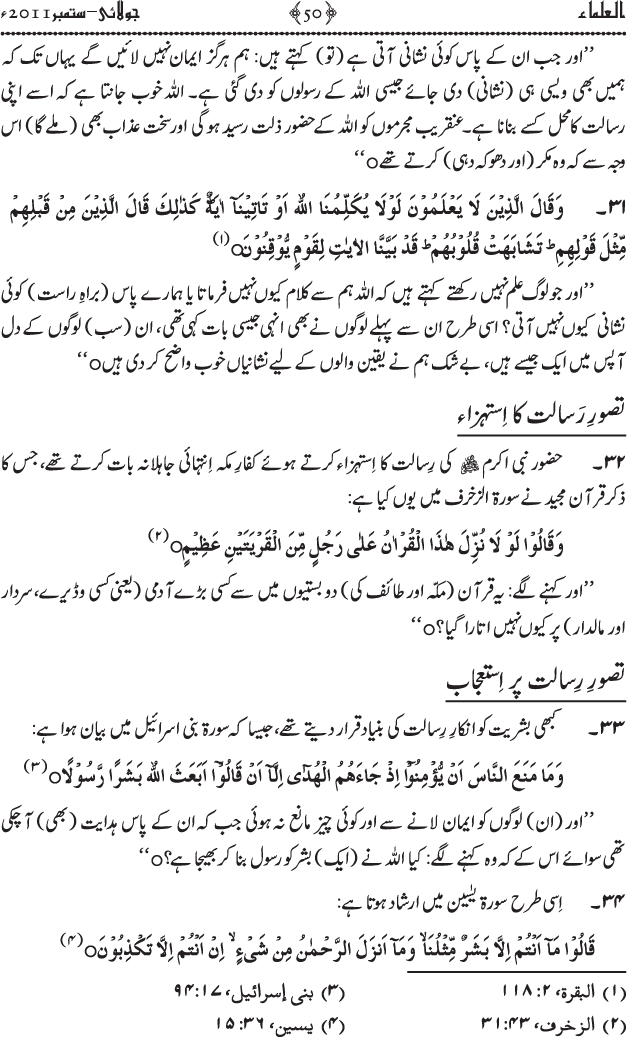 العلماء ﴿50﴾ جولائی–ستمبر 2011ء
’’اور جب ان کے پاس کوئی نشانی آتی ہے (تو) کہتے ہیں: ہم ہرگز ایمان نہیں لائیں گے یہاں تک کہ
ہمیں بھی ویسی ہی (نشانی) دی جائے جیسی اللہ کے رسولوں کو دی گئی ہے۔ اللہ خوب جانتا ہے کہ اسے اپنی
رسالت کا محل کسے بنانا ہے۔ عنقریب مجرموں کو اللہ کے حضور ذلت رسید ہوگی اور سخت عذاب بھی (ملے گا) اس
وجہ سے کہ وہ مکر (اور دھوکہ دہی) کرتے تھے○‘‘
۳۱۔ وَقَالَ الَّذِيْنَ لَا يَعْلَمُوْنَ لَوْلَا يُكَلِّمُنَا اللهُ اَوْ تَاتِيْنَآ اٰيَةٌ ؕ كَذٰلِكَ قَالَ الَّذِيْنَ مِنْ قَبْلِهِمْ
مِّثْلَ قَوْلِهِمْ ؕ تَشَابَهَتْ قُلُوْبُهُمْ ؕ قَدْ بَيَّنَّا الاٰيٰتِ لِقَوْمٍ يُّوْقِنُوْنَ○(۱)
’’اور جو لوگ علم نہیں رکھتے کہتے ہیں کہ اللہ ہم سے کلام کیوں نہیں فرماتا یا ہمارے پاس (براہِ راست) کوئی
نشانی کیوں نہیں آتی؟ اسی طرح ان سے پہلے لوگوں نے بھی انہی جیسی بات کہی تھی، ان (سب) لوگوں کے دل
آپس میں ایک جیسے ہیں، بے شک ہم نے یقین والوں کے لیے نشانیاں خوب واضح کر دی ہیں○‘‘
تصورِ رَسالت کا اِستہزاء
۳۲۔ حضور نبی اکرم ﷺ کی رِسالت کا اِستہزاء کرتے ہوئے کفارِ مکہ اِنتہائی جاہلانہ بات کرتے تھے، جس کا
ذکر قرآن مجید نے سورۃ الزخرف میں یوں کیا ہے:
وَقَالُوْا لَوْ لَا نُزِّلَ هٰذَا الْقُرْاٰنُ عَلٰى رَجُلٍ مِّنَ الْقَرْيَتَيْنِ عَظِيْمٍ○(۲)
’’اور کہنے لگے: یہ قرآن (مکّہ اور طائف کی) دو بستیوں میں سے کسی بڑے آدمی (یعنی کسی وڈیرے، سردار
اور مالدار) پر کیوں نہیں اتارا گیا؟○‘‘
تصورِ رِسالت پر اِستعجاب
۳۳۔ کبھی بشریت کو انکارِ رِسالت کی بنیاد قرار دیتے تھے، جیسا کہ سورۃ بنی اسرائیل میں بیان ہوا ہے:
وَمَا مَنَعَ النَّاسَ اَنْ يُّؤْمِنُوْٓا اِذْ جَاءَهُمُ الْهُدٰٓى اِلَّآ اَنْ قَالُوْٓا اَبَعَثَ اللهُ بَشَرًا رَّسُوْلًا○(۳)
’’اور (ان) لوگوں کو ایمان لانے سے اور کوئی چیز مانع نہ ہوئی جب کہ ان کے پاس ہدایت (بھی) آچکی
تھی سوائے اس کے کہ وہ کہنے لگے: کیا اللہ نے (ایک) بشر کو رسول بنا کر بھیجا ہے؟○‘‘
۳۴۔ اِسی طرح سورۃ یٰسین میں ارشاد ہوتا ہے:
قَالُوْا مَآ اَنْتُمْ اِلَّا بَشَرٌ مِّثْلُنَا ۙ وَمَآ اَنْزَلَ الرَّحْمٰنُ مِنْ شَيْءٍ ۙ اِنْ اَنْتُمْ اِلَّا تَكْذِبُوْنَ○(۴)
(۱) البقرة، ۲: ۱۱۸ (۳) بنی إسرائیل، ۱۷: ۹۴
(۲) الزخرف، ۴۳: ۳۱ (۴) یسین، ۳۶: ۱۵